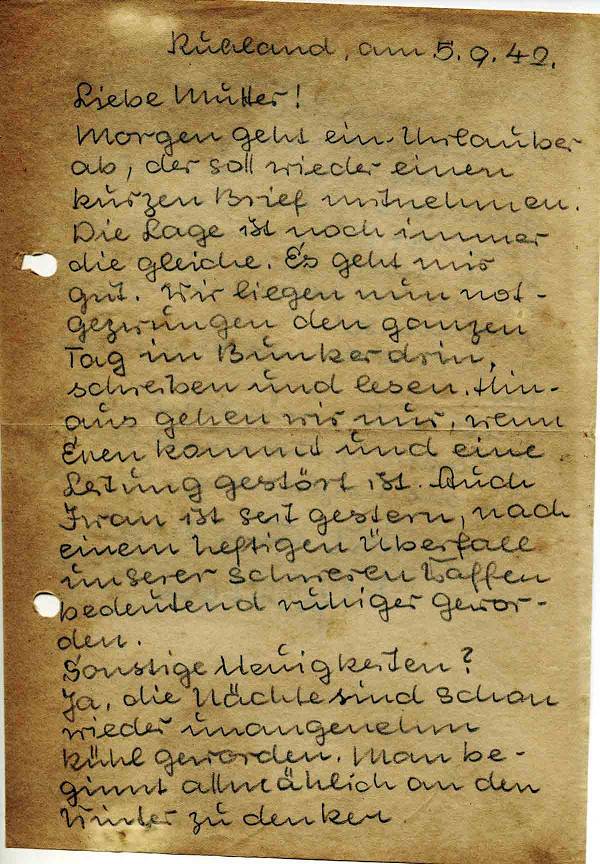 Rußland, am 5.9.42.
Liebe Mutter!
Morgen geht ein Urlauber
ab, der soll wieder einen
kurzen Brief mitnehmen.
Die Lage ist noch immer
die gleiche. Es geht mir
gut. Wir liegen nun not-
gezwungen den ganzen
Tag im Bunker drin,
schreiben und lesen. Hin-
aus gehen wir nur, wenn
Essen kommt und eine
Leitung gestört ist. Auch
Iwan ist seit gestern, nach
einem heftigen Überfall
unserer schweren Waffen
bedeutend ruhiger gewor-
den.
Sonstige Neuigkeiten?
Ja, die Nächte sind schon
wieder unangenehm
kühl geworden. Man be-
ginnt allmählich an den
Winter zu denken.